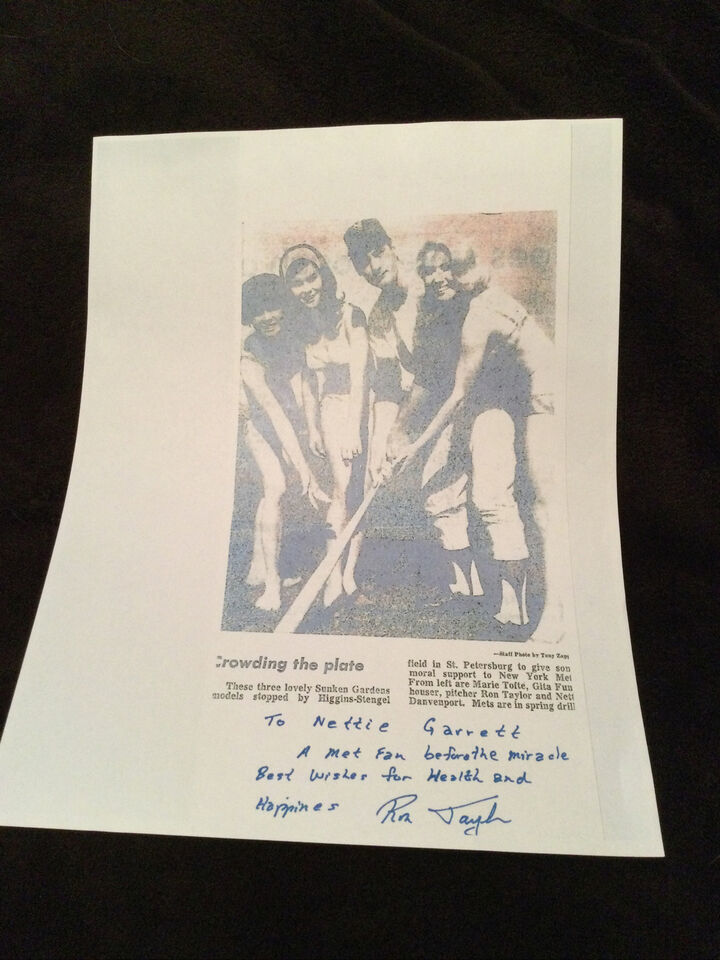 —Staff Photo by Tony Zapp
Crowding the plate
These three lovely Sunken Gardens
models stopped by Higgins-Stengel
field in St. Petersburg to give som
moral support to New York Met
From left are Marie Tofte, Gita Fun
houser, pitcher Ron Taylor and Nett
Danvenport. Mets are in spring drill
To Nettie Garrett
A Met Fan before the miracle
Best Wishes for Health and
Happines Ron Taylor